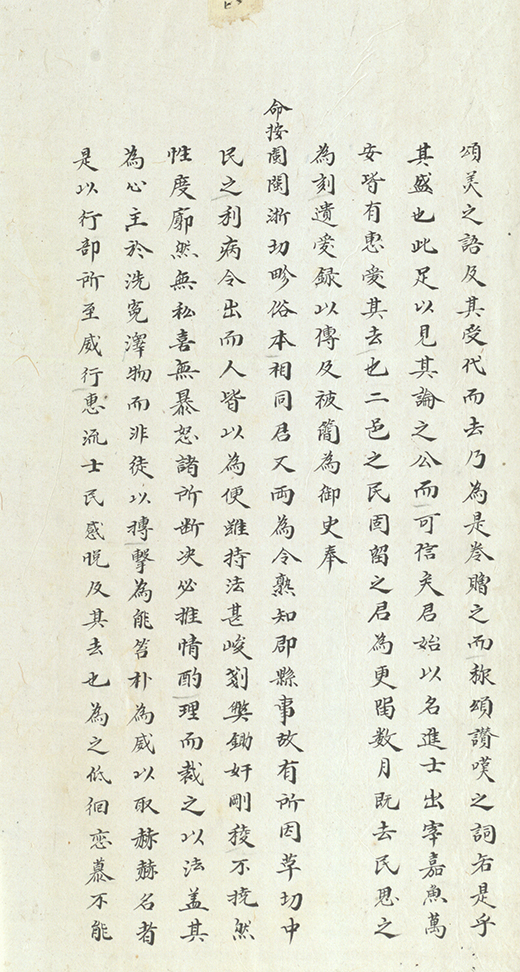 頌美之語及其受代而去乃為是卷贈之而称頌讃嘆之詞若是乎
其盛也此足以見其論之公而可信矣君始以名進士出宰嘉魚萬
安皆有惠愛其去也二邑之民固留之君為更留数月既去民思之
為刻遺愛録以傳及被簡為御史奉
命按閩閩浙切畛俗本相同君又両為令熟知郡縣事故有所因革切中
民之利病令出而人皆以為便雖持法甚峻剗弊鋤奸剛稜不撓然
性度廓然無私喜無暴怒諸所断决必推情酌理而裁之以法盖其
為心主於洗冤澤物而非徒以搏擊為能笞朴為威以取赫赫名者
是以行部所至威行惠流士民感悅及其去也為之低徊恋慕不能